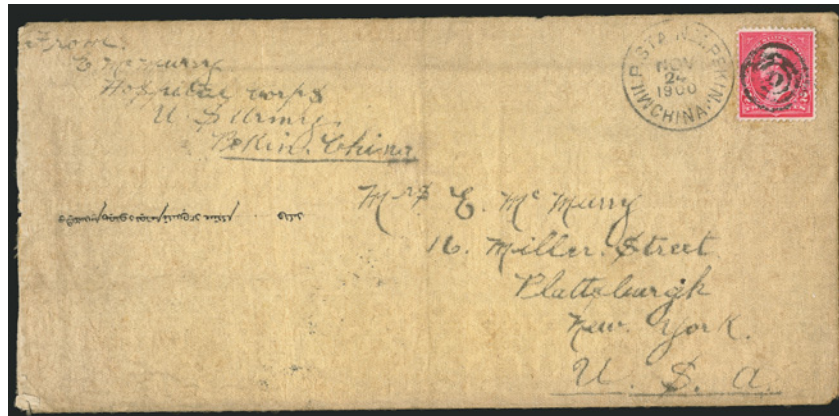 From.
E McMurry
Hospital Corps
U. S Army.
Pekin. China
MIL. P. STA. No. 1, PEKIN, CHINA.
NOV
24
1900
2
Mrs E. McMurry
16. Miller. Street
Plattsburgh
New. York.
U. S. A